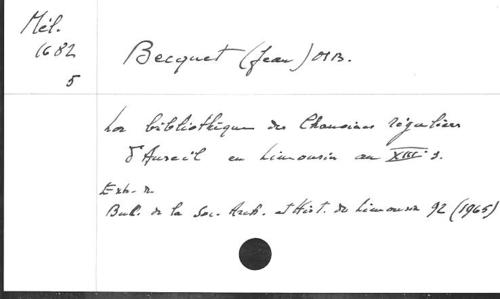 Mél.
1682
5
Becquet (Jean) OSB.
La bibliothèque des Chanoines réguliers
d'Aureil en Limousin au XIIIe s.
Extr. de
Bul. de la Soc. Arch. et Hist. du Limousin 92 (1965)